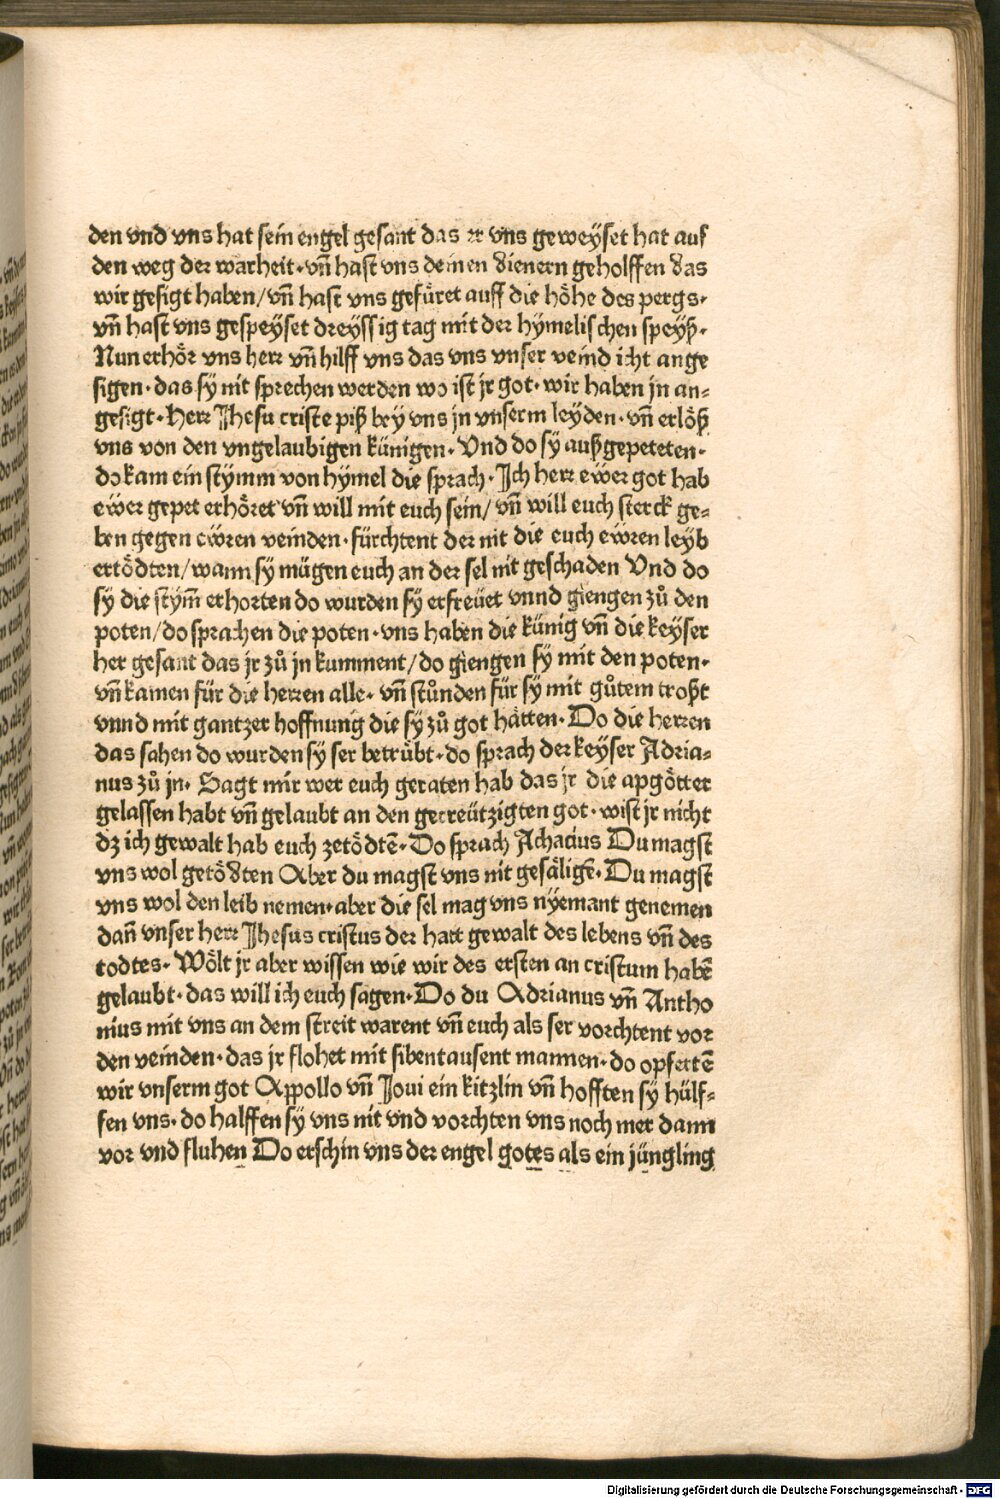 den vnd vns hat sein engel gesant das er vns geweyset hat auf
den weg der warheit· vñ hast vns deinen dienern geholffen das
wir gesigt haben/ vñ hast vns gefüret auff die höhe des pergs·
vñ hast vns gespeyset dreyssig tag mit der hymelischen speyß·
Nun erhör vns herr vñ hilff vns das vns vnser veind icht ange
sigen· das sy nit sprechen werden wo ist jr got· wir haben jn an=
gesigt· Herr Jhesu criste piß bey vns jn vnserm leyden· vñ erlöß
vns von den vngelaubigen künigen· Vnd do sy außgepeteten·
do kam ein stymm von hymel die sprach· Jch herr ewer got hab
ewer gepet erhöret vñ will mit euch sein/ vñ will euch sterck ge=
ben gegen ewren veinden· fürchtent der nit die euch ewren leyb
ertödten/ wann sy mügen euch an der sel nit geschaden Vnd do
sy die stym̃ erhorten do wurden sy erfreüet vnnd giengen zů den
poten/ do sprachen die poten· vns haben die künig vñ die keyser
her gesant das jr zů jn kumment/ do giengen sy mit den poten·
vñ kamen für die herren alle· vñ stůnden für sy mit gůtem troßt
vnnd mit gantzer hoffnung die sy zů got hätten· Do die herren
das sahen do wurden sy ser betrübt· do sprach der keyser Adria=
nus zů jn· Sagt mir wer euch geraten hab das jr die apgötter
gelassen habt vñ gelaubt an den gecreützigten got· wist jr nicht
dz ich gewalt hab euch zetödtẽ· Do sprach Achacius Du magst
vns wol getödten Aber du magst vns nit gesäligẽ· Du magst
vns wol den leib nemen· aber die sel mag vns nyemant genemen
dañ vnser herr Jhesus cristus der hatt gewalt des lebens vñ des
todtes· Wölt jr aber wissen wie wir des ersten an cristum habẽ
gelaubt· das will ich euch sagen· Do du Adrianus vñ Antho
nius mit vns an dem streit warent vñ euch als ser vorchtent vor
den veinden· das jr flohet mit sibentausent mannen· do opfertẽ
wir vnserm got Appollo vñ Joui ein kitzlin vñ hofften sy hülf=
fen vns· do halffen sy vns nit vnd vorchten vns noch mer dann
vor vnd fluhen Do erschin vns der engel gotes als ein jüngling
Digitalisierung gefördert durch die Deutsche Forschungsgemeinschaft - DFG